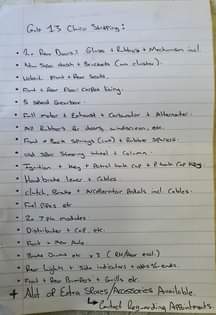 Golf 1 3 Chico Stripping:
2x Rear Doors: Glass + Rubbers + Mechanism incl
New Shape dash + Brackets (no cluster).
Uebrit Front + Rear Seats.
Front + Rear Floor Carpet lining.
5 speed Gearbox
Full motor + Exhaust + Carburator + Alternator.
All Rubbers for doors, windscreen, etc.
Front + Back Springs (low) + Rubber Spacers.
Old Shape Steering wheel + Column.
Ignition + Key + Petrol tank Cap + Petrol Cap Key.
Handbrake lever + Cables
Clutch, Brake + Accelerator Pedals incl. Cables.
Fuel Pipes etc
20 TP7h modules
Distributor + Coil etc.
Front + Rear Axle
Brake Drums etc x 3 (RH/Rear excl.)
Rear lights + Side indicators + odds + ends.
Front + Rear Bumpers + Grills etc.
+ Alot of Extra Spares/Accessories Available.
Contact Regarding Appointments.